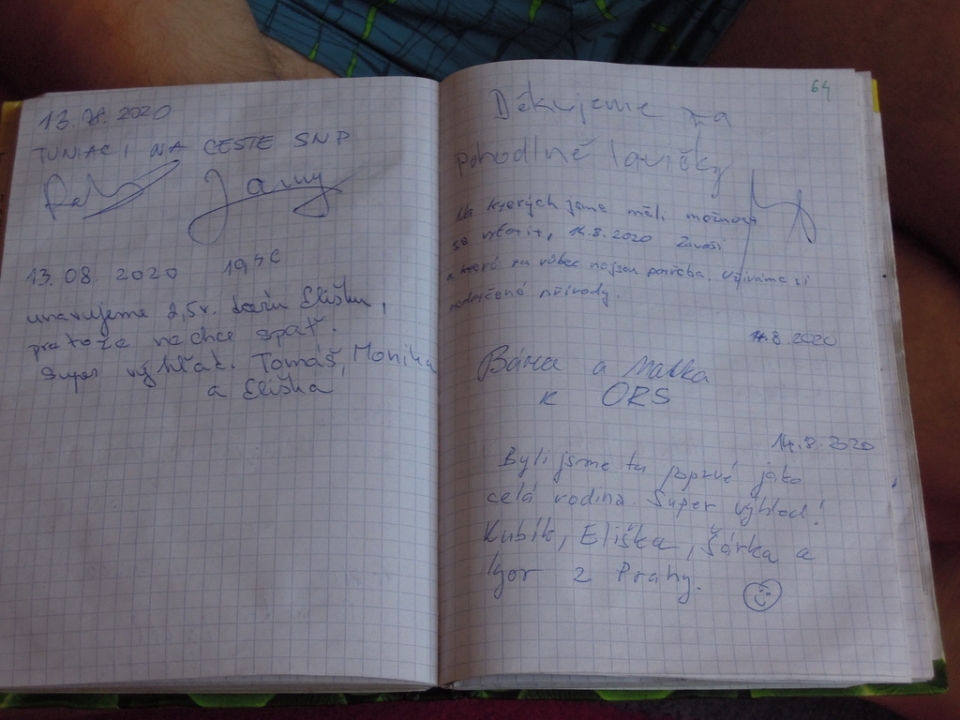 13. 08. 2020
TUNIACI NA CESTE SNP
Jany
13. 08. 2020 19,40
unavujeme 2,5r. dcéru Elišku,
pretože nechce spať.
Super výhľad. Tomáš, Monika
a Eliška
64
Děkujeme za
pohodlné lavičky
Na kterých jsme měli možnost
se 14.8.2020
a které tu vůbec nejsou potřeba. Užíváme si
přírody.
14.8.2020
Bára a Matka
K ORS
14.8.2020
Byli jsme tu poprvé jako
celá rodina. Super výhled!
Kubík, Eliška, Šárka a
Igor z Prahy.